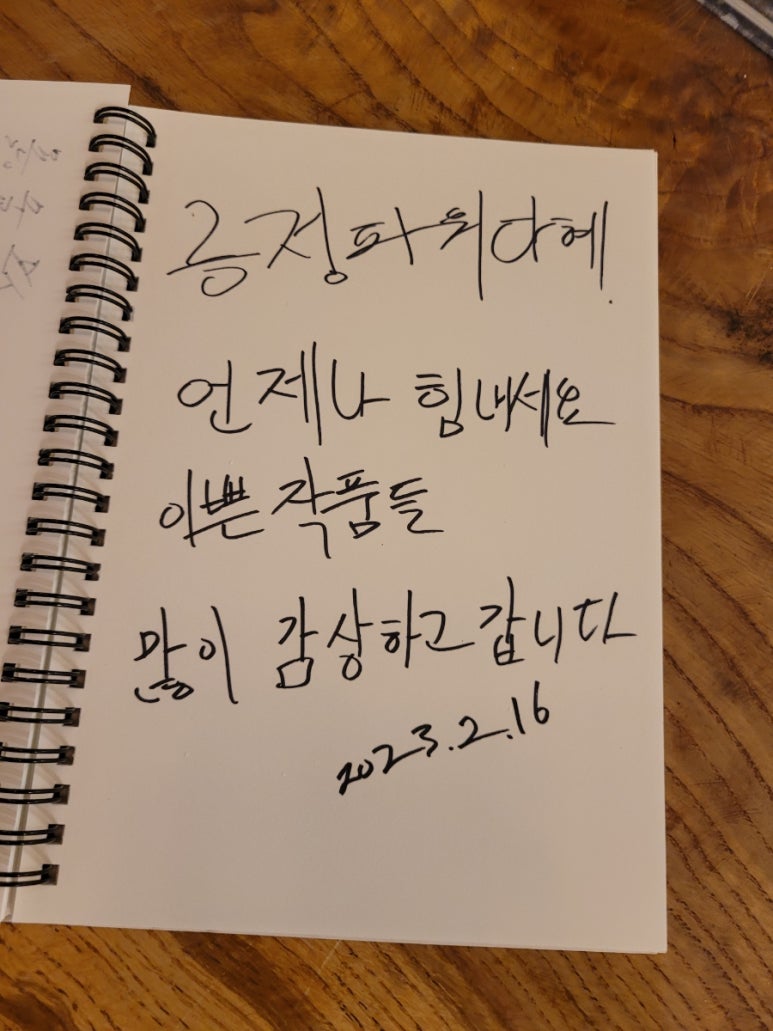 긍정파워다혜.
언제나 힘내세요
이쁜 작품들
많이 감상하고 갑니다
2023.2.16